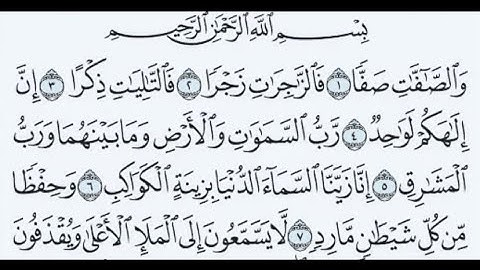 بِسْمِ ٱللَّهِ ٱلرَّحْمَٰنِ ٱلرَّحِيمِ
وَٱلصَّٰٓفَّٰتِ صَفًّا ١ فَٱلزَّٰجِرَٰتِ زَجْرًا ٢ فَٱلتَّٰلِيَٰتِ ذِكْرًا ٣ إِنَّ
إِلَٰهَكُمْ لَوَٰحِدٌ ٤ رَّبُّ ٱلسَّمَٰوَٰتِ وَٱلْأَرْضِ وَمَا بَيْنَهُمَا وَرَبُّ
ٱلْمَشَٰرِقِ ٥ إِنَّا زَيَّنَّا ٱلسَّمَآءَ ٱلدُّنْيَا بِزِينَةٍ ٱلْكَوَاكِبِ ٦ وَحِفْظًا
مِّن كُلِّ شَيْطَٰنٍ مَّارِدٍ ٧ لَّا يَسَّمَّعُونَ إِلَى ٱلْمَلَإِ ٱلْأَعْلَىٰ وَيُقْذَفُونَ